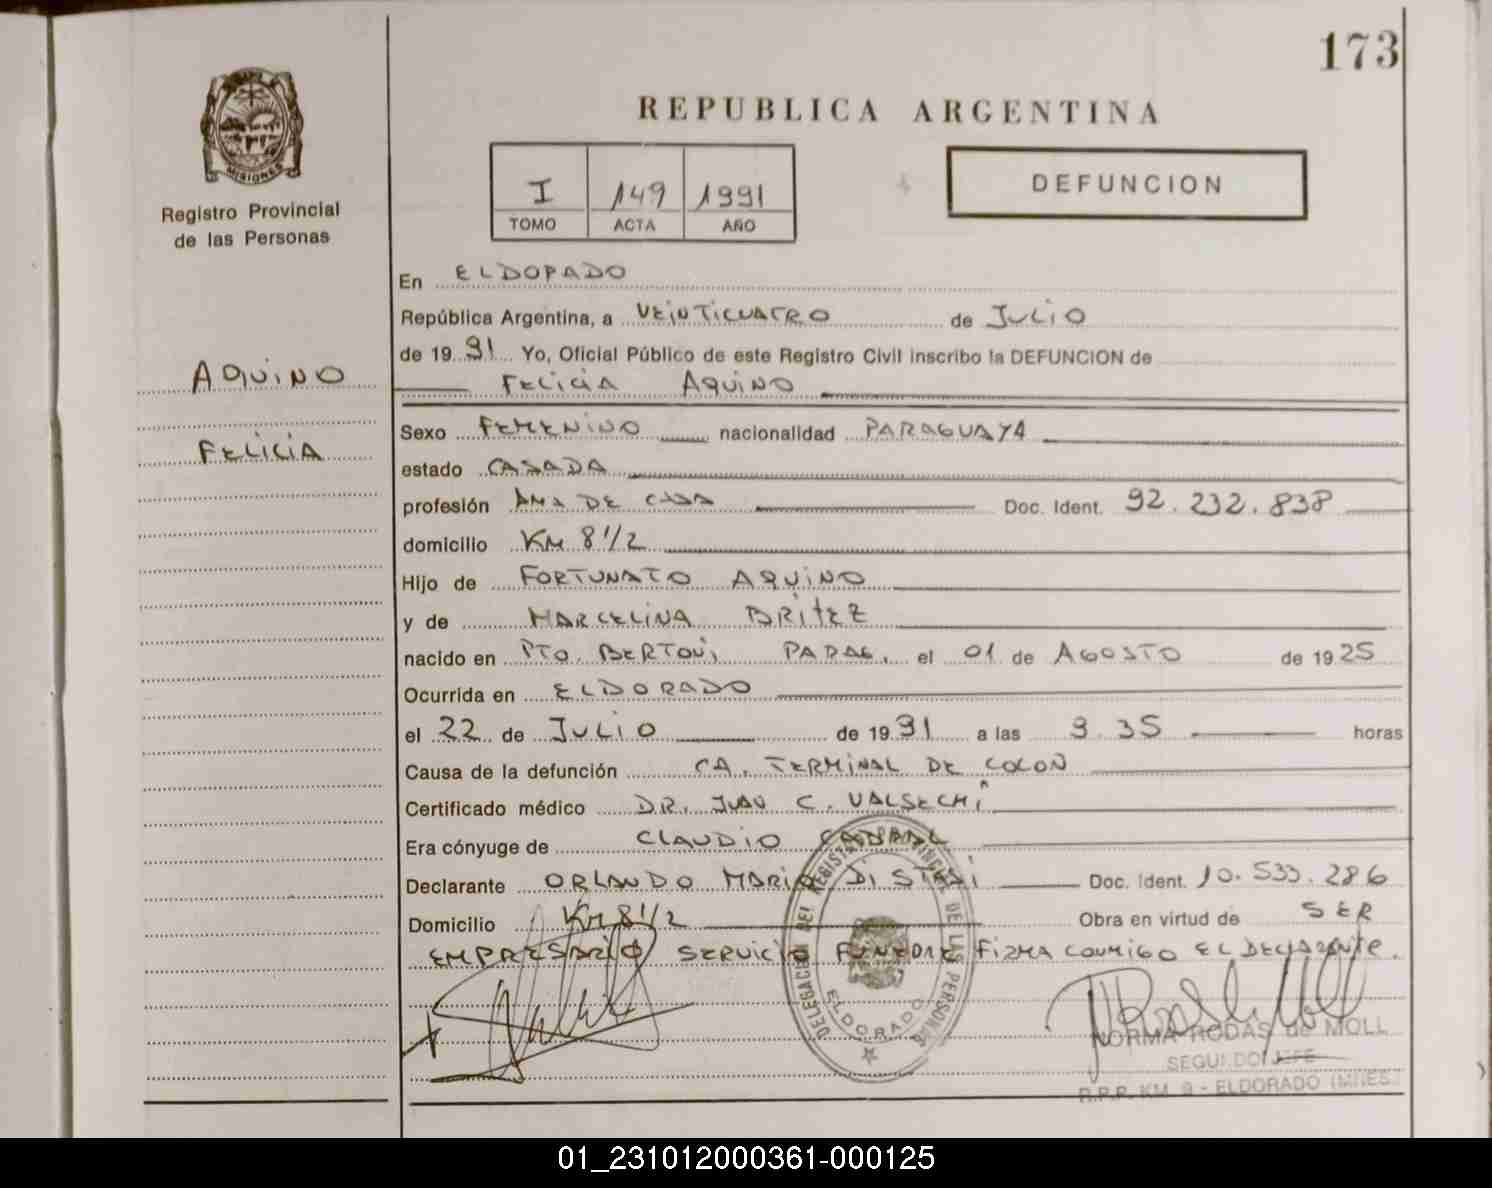 173
REPUBLICA ARGENTINA
MISIONES
Registro Provincial
de las Personas
I 149 1991
TOMO ACTA AÑO
DEFUNCION
AQUINO
FELICIA
En ELDORADO
República Argentina, a VEINTICUATRO de JULIO
de 19 91 Yo, Oficial Público de este Registro Civil inscribo la DEFUNCION de
FELICIA AQUINO
Sexo FEMENINO nacionalidad PARAGUAYA
estado CASADA
profesión AMA DE CASA Doc. Ident. 92.232.838
domicilio KM 8 1/2
Hijo de FORTUNATO AQUINO
y de MARCELINA BRITEZ
nacido en PTO. BERTONI PARAG. el 01 de AGOSTO de 1925
Ocurrida en ELDORADO
el 22 de JULIO de 19 91 a las 9.35 horas
Causa de la defunción CA. TERMINAL DE COLON
Certificado médico DR. JUAN C. VALSECHI
Era cónyuge de CLAUDIO CABRAL
Declarante ORLANDO MARIO DI STASI Doc. Ident. 10.533.286
Domicilio KM 8 1/2 Obra en virtud de SER
EMPRESARIO SERVICIO FUNEBRE FIRMA CONMIGO EL DECLARANTE.
DELEGACION DEL REGISTRO PROVINCIAL DE LAS PERSONAS
ELDORADO
NORMA RODAS de MOLL
SEGUNDO JEFE
R.P.P. KM. 9 - ELDORADO (MNES.)
01_231012000361-000125